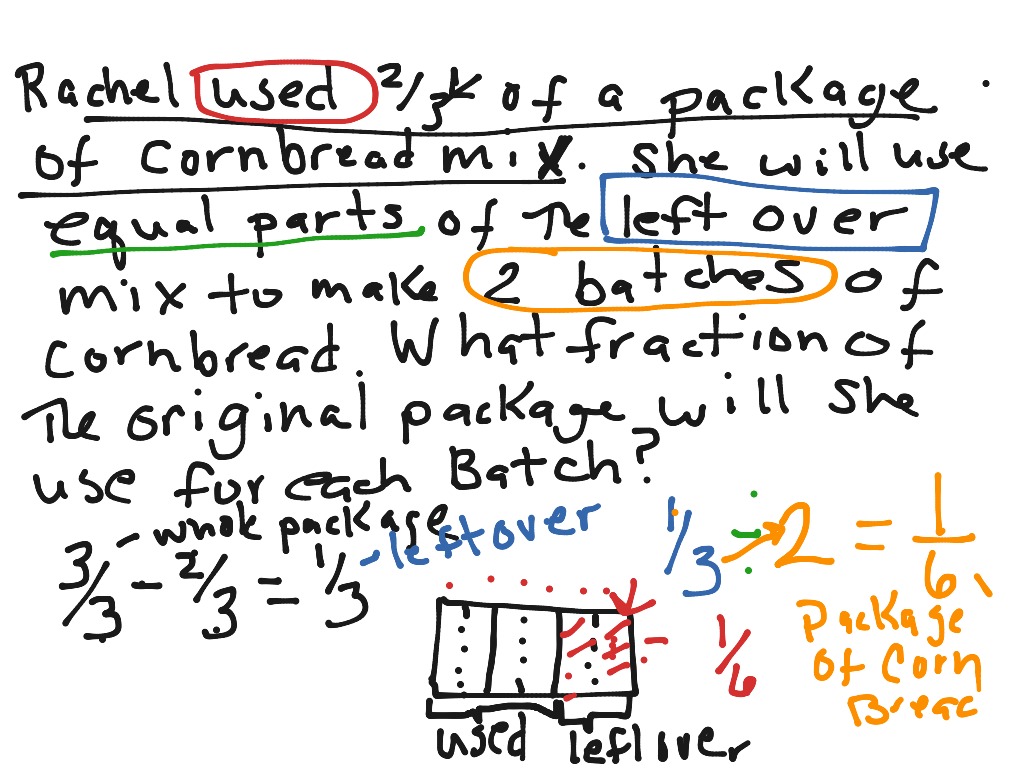 Rachel used 2/3 of a package
of Cornbread mix. She will use
equal parts of The left over
mix to make 2 batches of
Cornbread. What fraction of
The original package will She
use for each Batch?
3/3 - whole package
3/3 - 2/3 = 1/3 - leftover
1/3 ÷ 2 = 1/6
Package
of Corn
Bread
1/6
used leftover